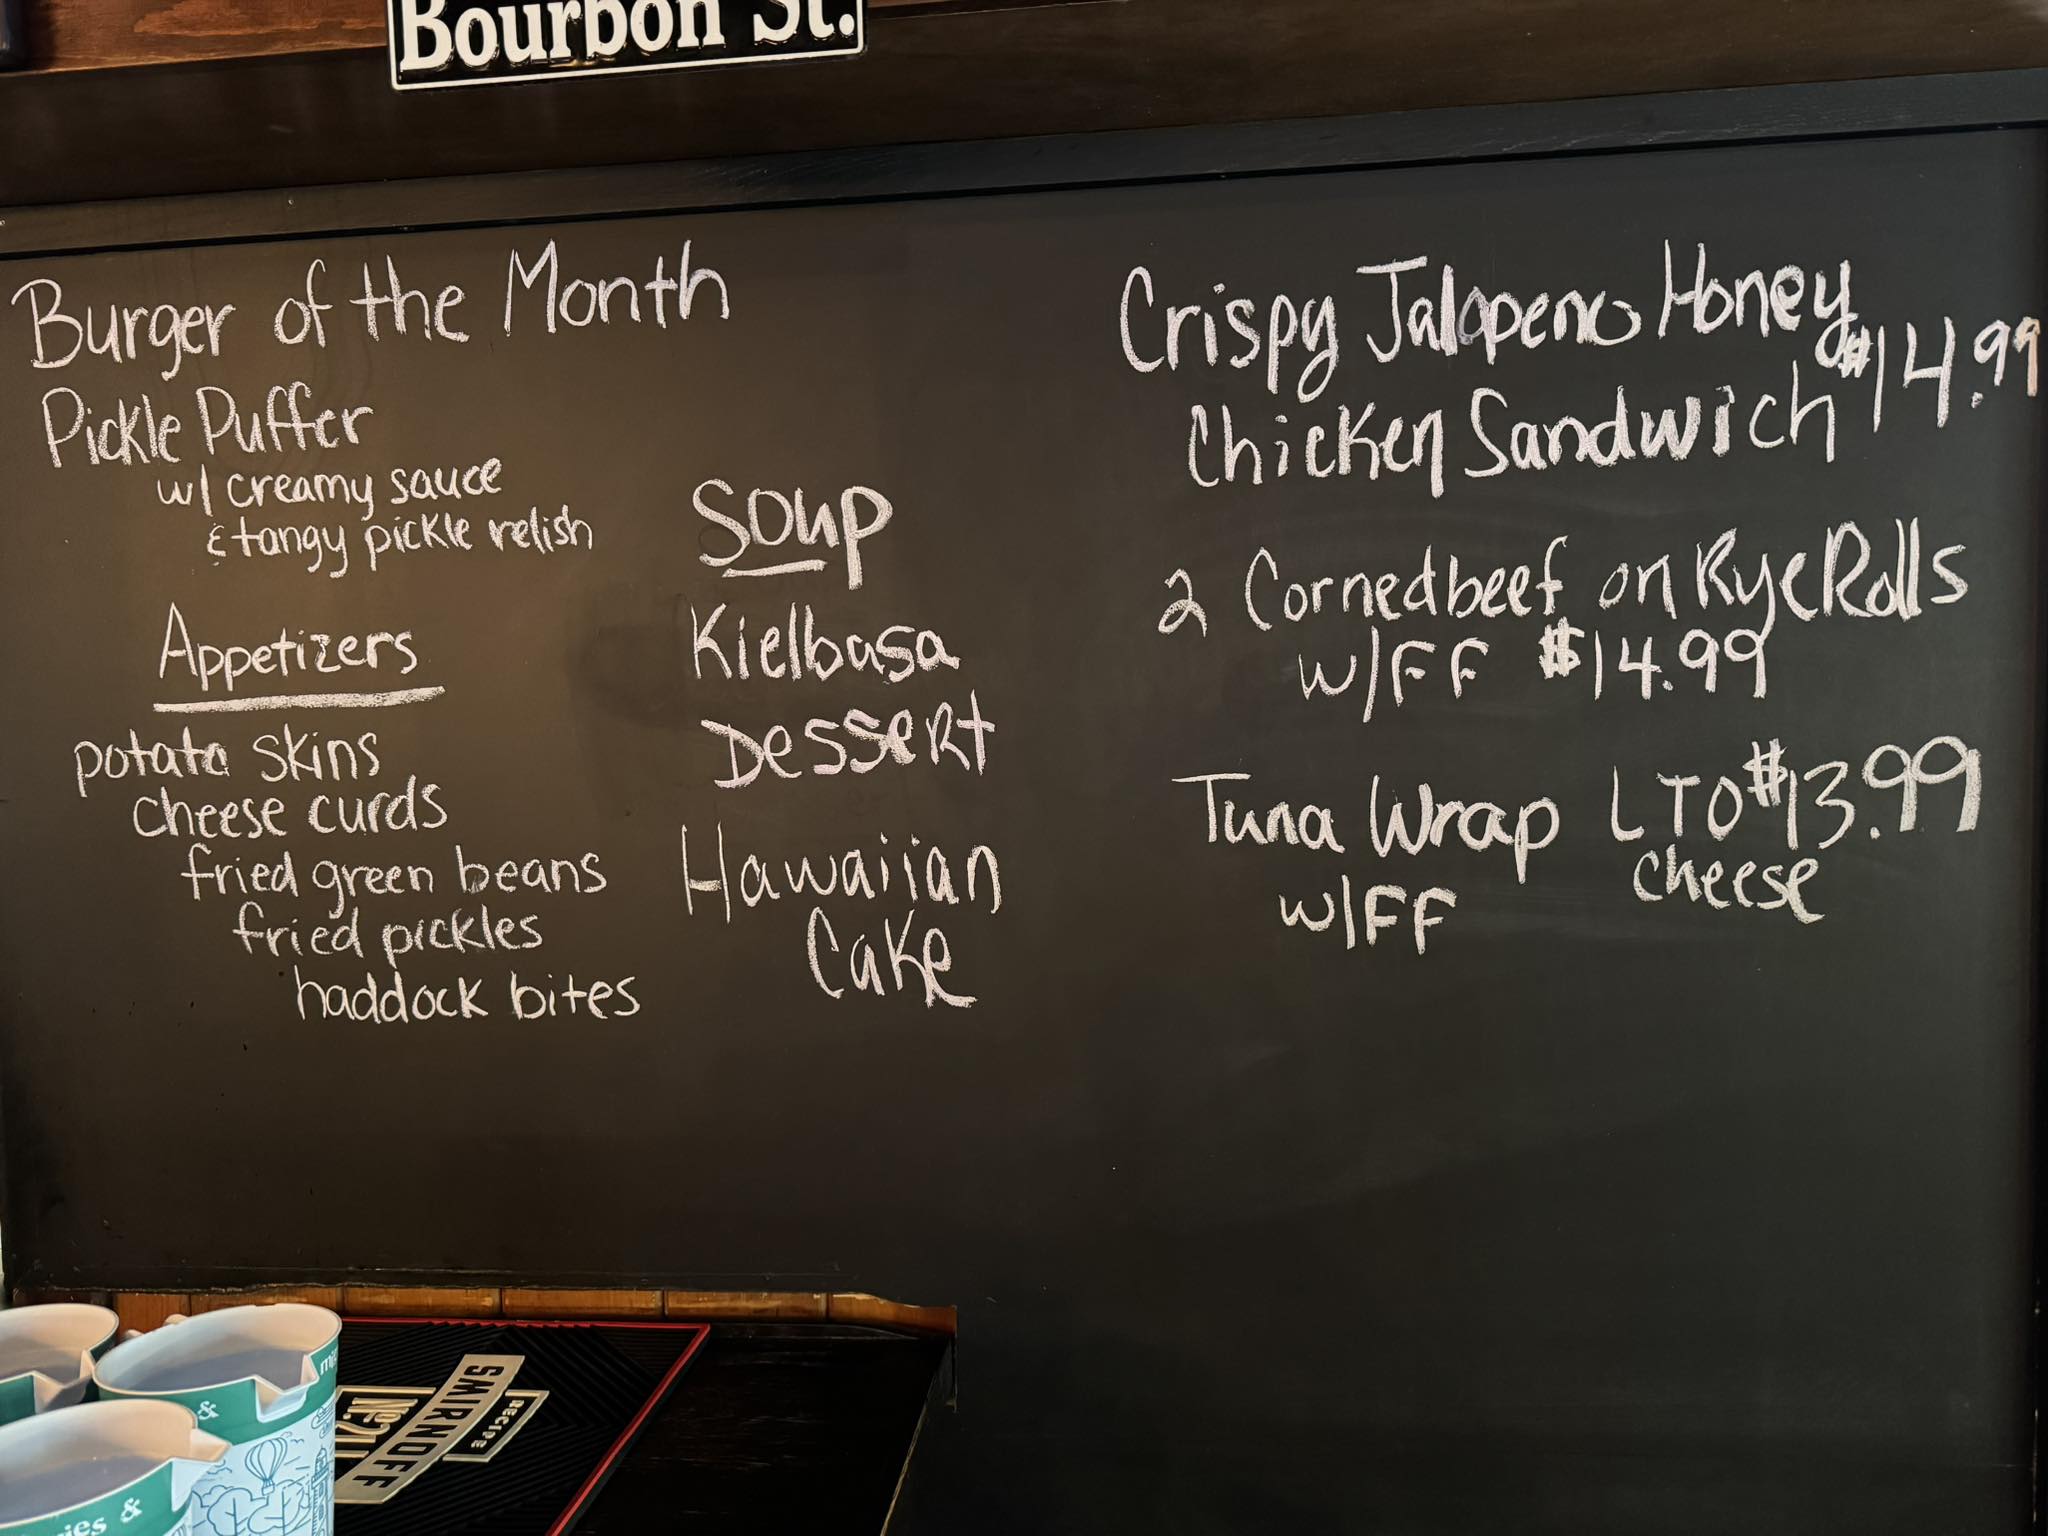 Bourbon St.
Burger of the Month
Pickle Puffer
w/ creamy sauce
& tangy pickle relish
Appetizers
potato skins
cheese curds
fried green beans
fried pickles
haddock bites
Soup
Kielbasa
Dessert
Hawaiian
Cake
Crispy Jalapeno Honey
Chicken Sandwich $14.99
2 Corned beef on Rye Rolls
w/FF $14.99
Tuna Wrap LTO $13.99
cheese
w/FF
RECIPE
SMIRNOFF
No. 21
&
ies &